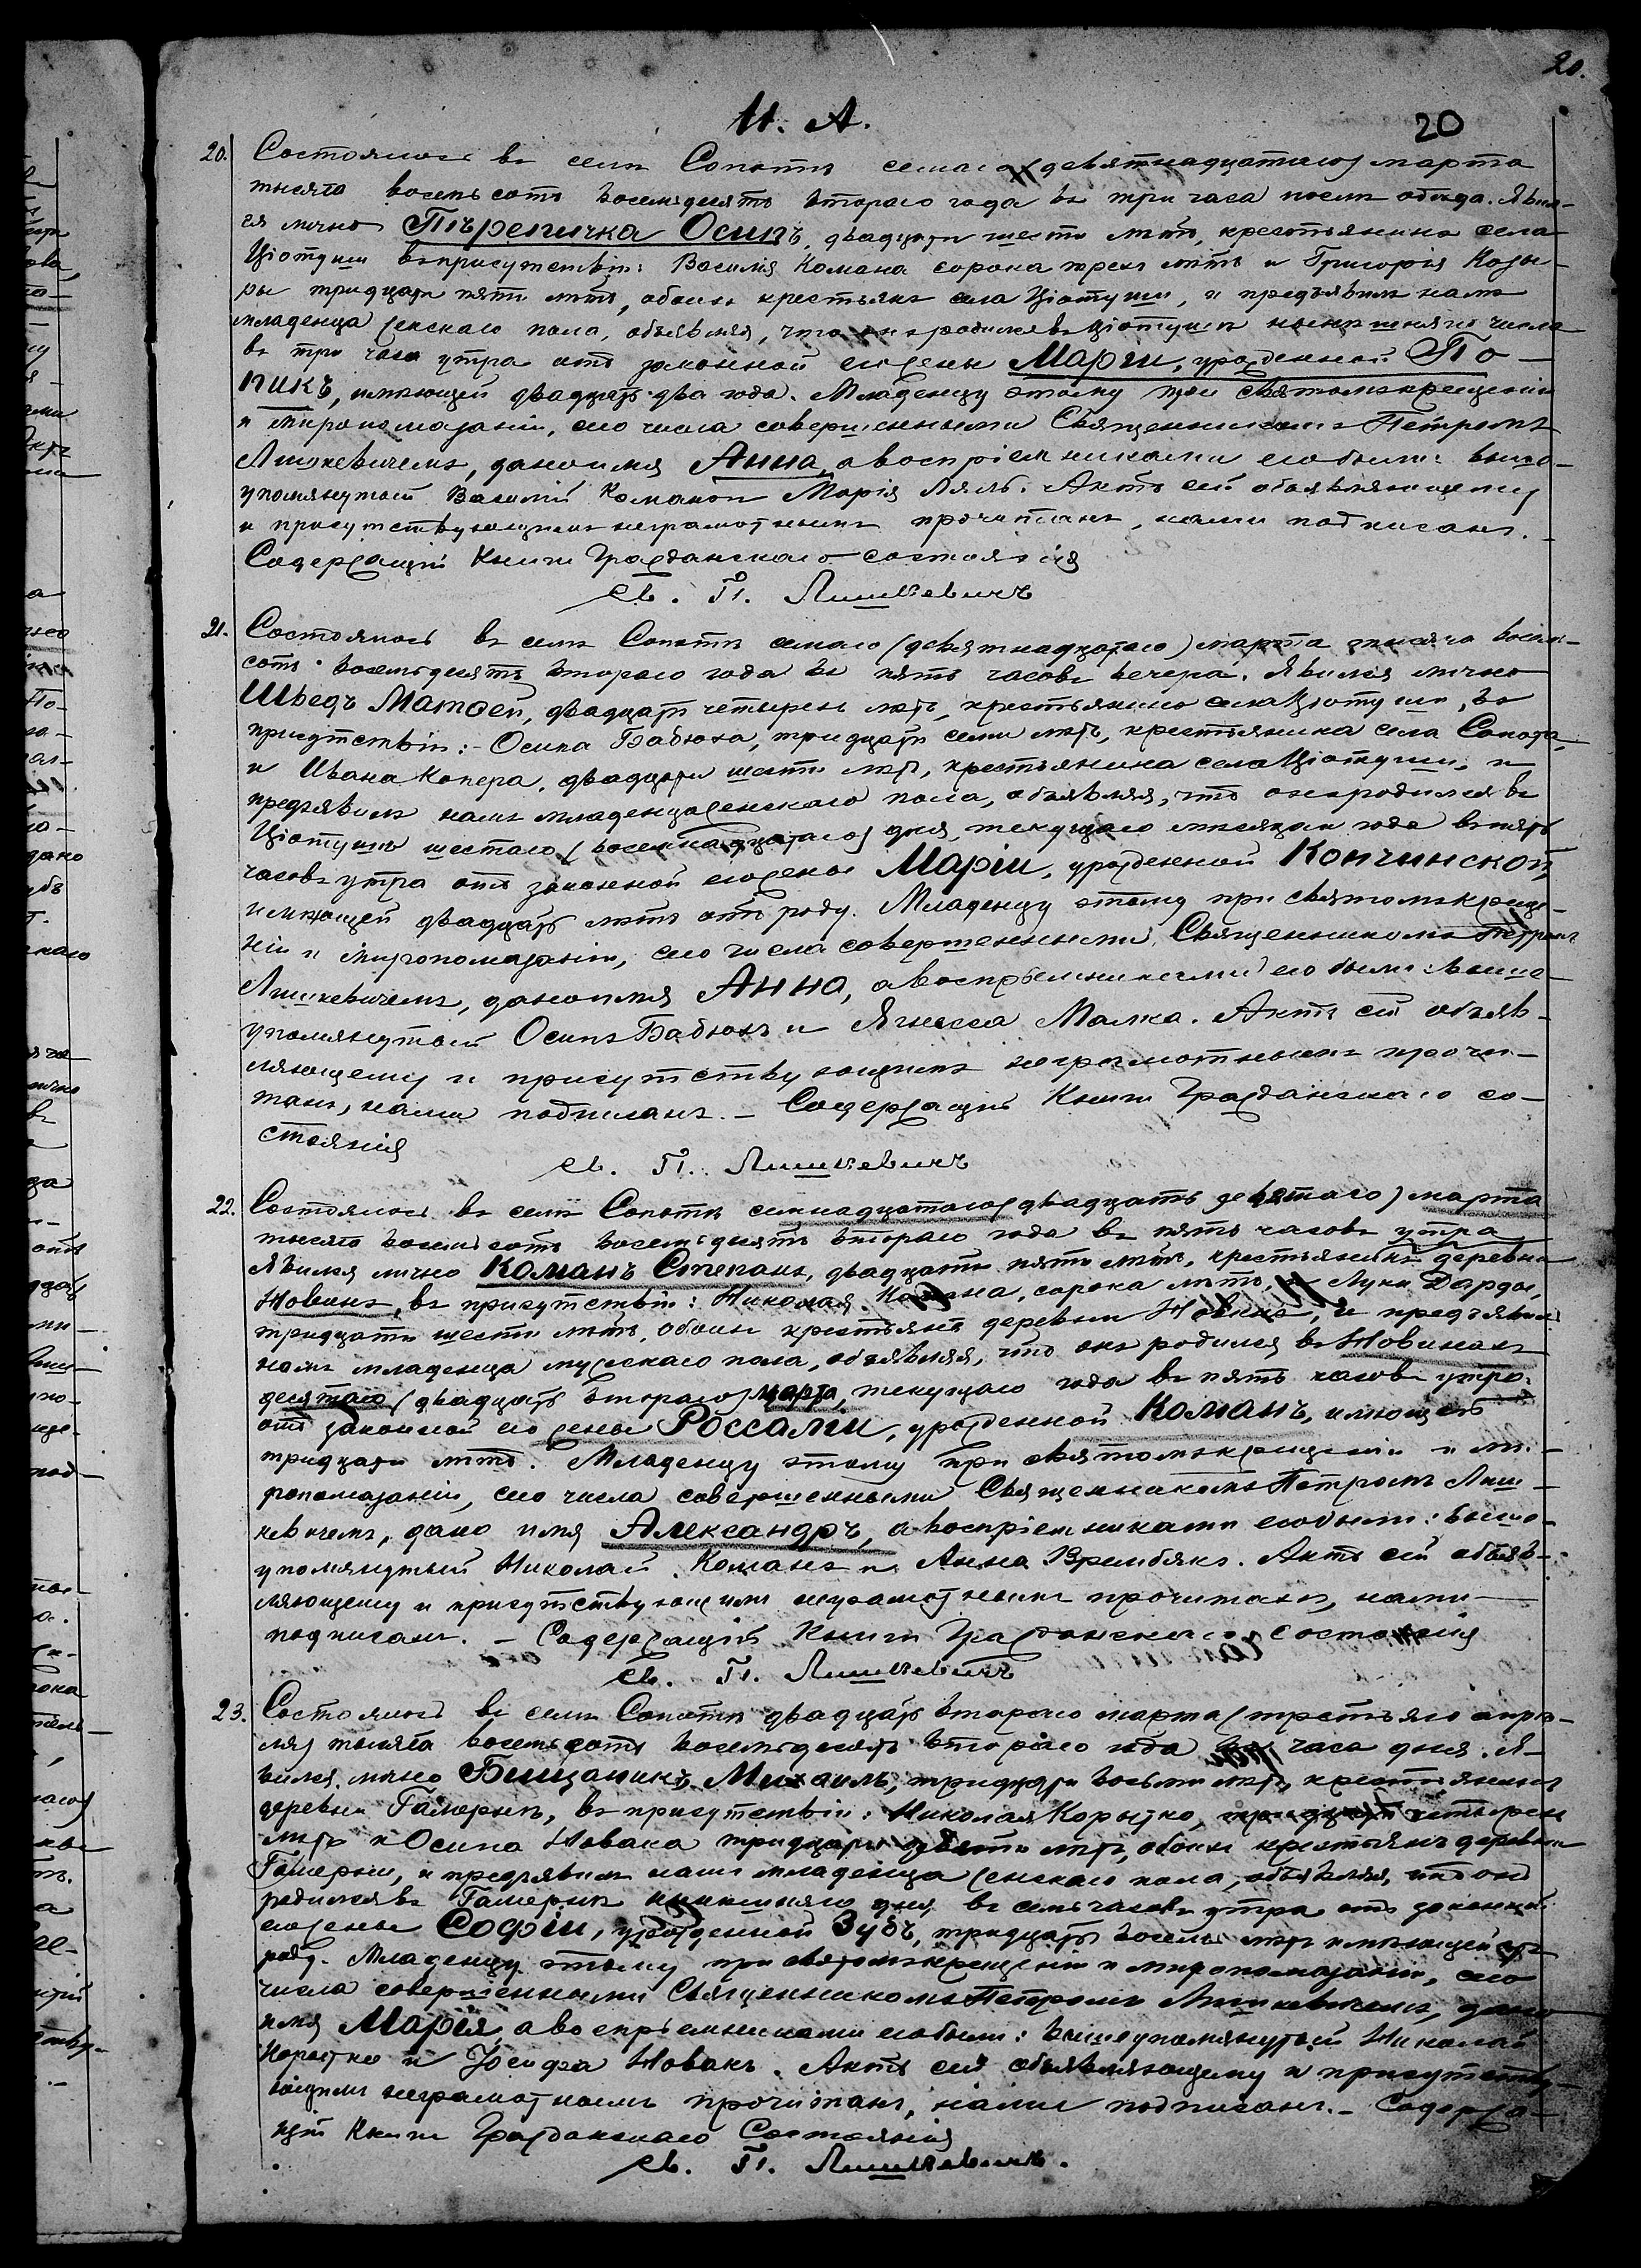 20.
Н. А.
20
20. Состоялось въ селѣ Сопотѣ седьмаго (девятнадцатаго) марта
тысяча восемь сотъ восемьдесятъ втораго года въ три часа послѣ обѣда. Явил-
ся лично Осипъ, двадцати шести лѣтъ, крестьянинъ села
Ціотуши въ присутствіи: Василія Комана сорока трехъ лѣтъ и Григорія Козы-
ры тридцати пяти лѣтъ, обоихъ крестьянъ села Ціотуши, и предъявилъ намъ
младенца женскаго пола, объявляя, что онъ родился въ Ціотушѣ нынѣшняго числа
въ три часа утра отъ законной его жены Маріи, урожденной По-
пикъ, имѣющей двадцать два года. Младенцу этому при святомъ крещеніи
и миропомазаніи, сего числа совершенными Священникомъ Петромъ
Лишкевичемъ, дано имя Анна, а воспріемниками его были: выше-
упомянутый Василій Коман и Марія Ляль. Актъ сей объявляющему
и присутствующимъ неграмотнымъ прочитанъ, нами подписанъ.
Содержащій Книги Гражданскаго состоянія
Св. П. Лишкевичъ
21. Состоялось въ селѣ Сопотѣ седьмаго (девятнадцатаго) марта тысяча восемь-
сотъ восемьдесятъ втораго года въ пять часовъ вечера. Явился лично
Шведъ Матѳей, двадцати четырехъ лѣтъ, крестьянинъ села Ціотуши, въ
присутствіи: - Осипа Бабюха, тридцати семи лѣтъ, крестьянина села Сопота,
и Ивана Копера, двадцати шести лѣтъ, крестьянина села Ціотуши, и
предъявилъ намъ младенца женскаго пола, объявляя, что онъ родился въ
Ціотушѣ шестаго (восемнадцатаго) дня, текущаго мѣсяца и года въ пять
часовъ утра отъ законной его жены Маріи, урожденной Кончинской,
имѣющей двадцать лѣтъ отъ роду. Младенцу этому при святомъ креще-
ніи и миропомазаніи, сего числа совершенными Священникомъ Петромъ
Лишкевичемъ, дано имя Анна, а воспріемниками его были: выше-
упомянутый Осипъ Бабюхъ и Ягнесса Малка. Актъ сей объяв-
ляющему и присутствующимъ неграмотнымъ прочи-
танъ, нами подписанъ. - Содержащій Книги Гражданскаго со-
стоянія
Св. П. Лишкевичъ
22. Состоялось въ селѣ Сопотѣ семнадцатаго (двадцать девятаго) марта
тысяча восемьсотъ восемьдесятъ втораго года въ пять часовъ утра
Явился лично Команъ Степанъ, двадцати пяти лѣтъ, крестьянинъ деревни
Новинъ, въ присутствіи: Николая Комана, сорока лѣтъ, и Луки Дарды,
тридцати шести лѣтъ, обоихъ крестьянъ деревни Новинъ, и предъявилъ
намъ младенца мужескаго пола, объявляя, что онъ родился въ Новинахъ
десятаго (двадцать втораго) марта, текущаго года въ пять часовъ утра
отъ законной его жены Россаліи, урожденной Команъ, имѣющей
тридцати лѣтъ. Младенцу этому при святомъ крещеніи и ми-
ропомазаніи, сего числа совершенными Священникомъ Петромъ Лиш-
кевичемъ, дано имя Александръ, а воспріемниками его были: выше-
упомянутый Николай Команъ и Анна Врембякъ. Актъ сей объяв-
ляющему и присутствующимъ неграмотнымъ прочитанъ, нами
подписанъ. - Содержащій Книги Гражданскаго состоянія
Св. П. Лишкевичъ
23. Состоялось въ селѣ Сопотѣ двадцать втораго марта (третьяго апрѣ-
ля) тысяча восемьсотъ восемьдесятъ втораго года въ три часа дня. Я-
вился лично Михаилъ, тридцати восьми лѣтъ, крестьянинъ
деревни Гамерни, въ присутствіи: Николая Корытко, четырехъ
лѣтъ и Осипа Новака тридцати девяти лѣтъ, обоихъ крестьянъ деревни
Гамерни, и предъявилъ намъ младенца женскаго пола, объявляя, что онъ
родился въ Гамернѣ нынѣшняго дня въ семь часовъ утра отъ законной
его жены Софіи, урожденной Зубъ, тридцать восемь лѣтъ имѣющей отъ
роду. Младенцу этому при святомъ крещеніи и миропомазаніи, сего
числа совершенными Священникомъ Петромъ Лишкевичемъ, дано
имя Марія, а воспріемниками его были: вышеупомянутый Николай
Корытко и Іосифа Новакъ. Актъ сей объявляющему и присутству-
ющимъ неграмотнымъ прочитанъ, нами подписанъ. - Содержа-
щій Книги Гражданскаго Состоянія
Св. П. Лишкевичъ.